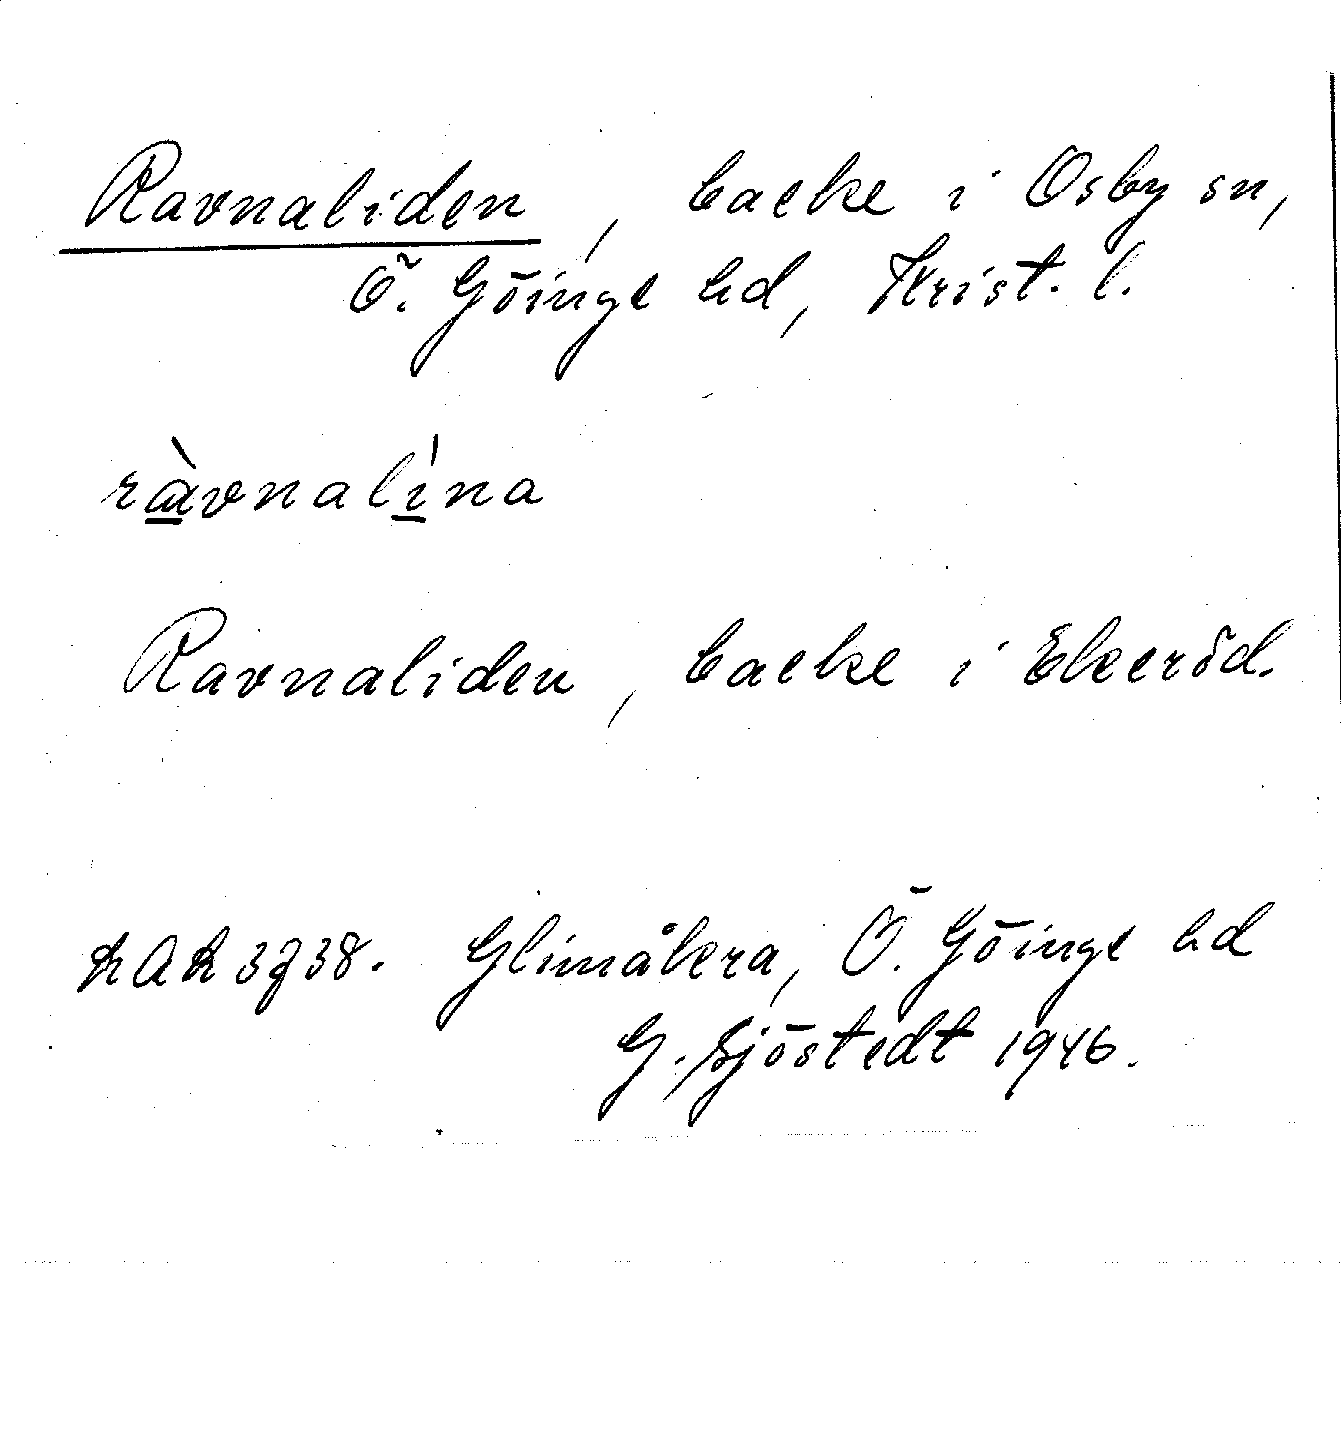 Ravnaliden, backe i Osby sn,
Ö. Göinge hd, Krist. l.
ràvnalìna
Ravnaliden, backe i Ekeröd.
Glimåkra, Ö. Göinge hd
G. Sjöstedt 1946.